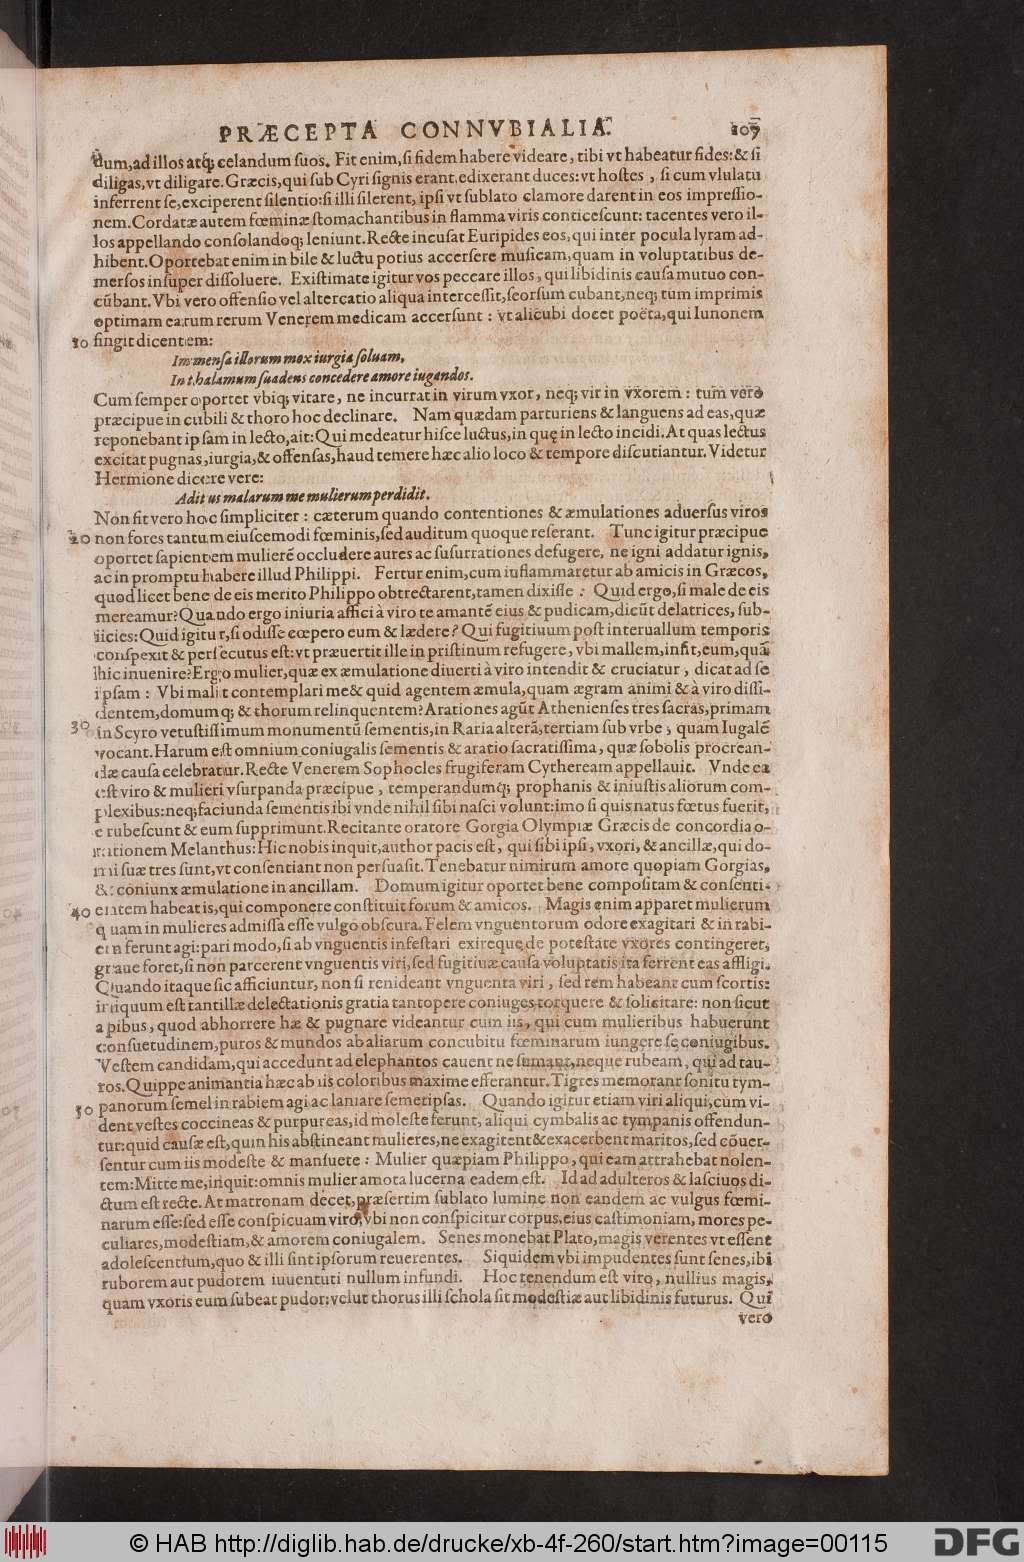 PRÆCEPTA CONNVBIALIA. 107
dum, ad illos atq; celandum suos. Fit enim, si fidem habere videare, tibi vt habeatur fides: & si
diligas, vt diligare. Græcis, qui sub Cyri signis erant, edixerant duces: vt hostes, si cum vlulatu
inferrent se, exciperent silentio: si illi silerent, ipsi vt sublato clamore darent in eos impressio-
nem. Cordatæ autem fœminæ stomachantibus in flamma viris conticescunt: tacentes vero il-
los appellando consolandoq; leniunt. Recte incusat Euripides eos, qui inter pocula lyram ad-
hibent. Oportebat enim in bile & luctu potius accersere musicam, quam in voluptatibus de-
mersos insuper dissoluere. Existimate igitur vos peccare illos, qui libidinis causa mutuo con-
cūbant. Vbi vero offensio vel altercatio aliqua intercessit, seorsum cubant, neq; tum imprimis
optimam earum rerum Venerem medicam accersunt: vt alicubi docet poëta, qui Iunonem
10 fingit dicentem:
Immensa illorum mox iurgia soluam,
In thalamum suadens concedere amore iugandos.
Cum semper oportet vbiq; vitare, ne incurrat in virum vxor, neq; vir in vxorem: tum vero
præcipue in cubili & thoro hoc declinare. Nam quædam parturiens & languens ad eas, quæ
reponebant ipsam in lecto, ait: Qui medeatur hisce luctus, in quę in lecto incidi. At quas lectus
excitat pugnas, iurgia, & offensas, haud temere hæc alio loco & tempore discutiantur. Videtur
Hermione dicere vere:
Aditus malarum me mulierum perdidit.
Non fit vero hoc simpliciter: cæterum quando contentiones & æmulationes aduersus viros
20 non fores tantum eiuscemodi fœminis, sed auditum quoque reserant. Tunc igitur præcipue
oportet sapientem mulierē occludere aures ac susurrationes defugere, ne igni addatur ignis,
ac in promptu habere illud Philippi. Fertur enim, cum inflammaretur ab amicis in Græcos,
quod licet bene de eis merito Philippo obtrectarent, tamen dixisse: Quid ergo, si male de eis
mereamur? Quando ergo iniuria affici à viro te amantē eius & pudicam, dicūt delatrices, sub-
iicies: Quid igitur, si odisse cœpero eum & lædere? Qui fugitiuum post interuallum temporis
conspexit & persecutus est: vt præuertit ille in pristinum refugere, vbi mallem, infit, eum, quā
hic inuenire? Ergo mulier, quæ ex æmulatione diuerti à viro intendit & cruciatur, dicat ad se
ipsam: Vbi malit contemplari me & quid agentem æmula, quam ægram animi & à viro dissi-
dentem, domumq; & thorum relinquentem? Arationes agūt Athenienses tres sacras, primam
30 in Scyro vetustissimum monumentū sementis, in Raria alterā, tertiam sub vrbe, quam Iugalē
vocant. Harum est omnium coniugalis sementis & aratio sacratissima, quæ sobolis procrean-
dæ causa celebratur. Recte Venerem Sophocles frugiferam Cytheream appellauit. Vnde ea
est viro & mulieri vsurpanda præcipue, temperandumq; prophanis & iniustis aliorum com-
plexibus: neq; faciunda sementis ibi vnde nihil sibi nasci volunt: imo si quis natus fœtus fuerit,
erubescunt & eum supprimunt. Recitante oratore Gorgia Olympiæ Græcis de concordia o-
rationem Melanthus: Hic nobis inquit, author pacis est, qui sibi ipsi, vxori, & ancillæ, qui do-
mi suæ tres sunt, vt consentiant non persuasit. Tenebatur nimirum amore quopiam Gorgias,
& coniunx æmulatione in ancillam. Domum igitur oportet bene compositam & consenti-
40 entem habeat is, qui componere constituit forum & amicos. Magis enim apparet mulierum
quam in mulieres admissa esse vulgo obscura. Felem vnguentorum odore exagitari & in rabi-
em ferunt agi: pari modo, si ab vnguentis infestari exireque de potestate vxores contingeret,
graue foret, si non parcerent vnguentis viri, sed fugitiuæ causa voluptatis ita ferrent eas affligi.
Quando itaque sic afficiuntur, non si renideant vnguenta viri, sed rem habeant cum scortis:
iniquum est tantillæ delectationis gratia tantopere coniuges torquere & solicitare: non sicut
apibus, quod abhorrere hæ & pugnare videantur cum iis, qui cum mulieribus habuerunt
consuetudinem, puros & mundos ab aliarum concubitu fœminarum iungere se coniugibus.
Vestem candidam, qui accedunt ad elephantos cauent ne sumant, neque rubeam, qui ad tau-
ros. Quippe animantia hæc ab iis coloribus maxime efferantur. Tigres memorant sonitu tym-
50 panorum semel in rabiem agi ac laniare semetipsas. Quando igitur etiam viri aliqui, cum vi-
dent vestes coccineas & purpureas, id moleste ferunt, aliqui cymbalis ac tympanis offendun-
tur: quid causæ est, quin his abstineant mulieres, ne exagitent & exacerbent maritos, sed cōuer-
sentur cum iis modeste & mansuete: Mulier quæpiam Philippo, qui eam attrahebat nolen-
tem: Mitte me, inquit: omnis mulier amota lucerna eadem est. Id ad adulteros & lasciuos di-
ctum est recte. At matronam decet, præsertim sublato lumine non eandem ac vulgus fœmi-
narum esse: sed esse conspicuam viro, vbi non conspicitur corpus, eius castimoniam, mores pe-
culiares, modestiam, & amorem coniugalem. Senes monebat Plato, magis verentes vt essent
adolescentium, quo & illi sint ipsorum reuerentes. Siquidem vbi impudentes sunt senes, ibi
ruborem aut pudorem iuuentuti nullum infundi. Hoc tenendum est viro, nullius magis,
quam vxoris eum subeat pudor: velut thorus illi schola sit modestiæ aut libidinis futurus. Qui
vero
© HAB http://diglib.hab.de/drucke/xb-4f-260/start.htm?image=00115
DFG